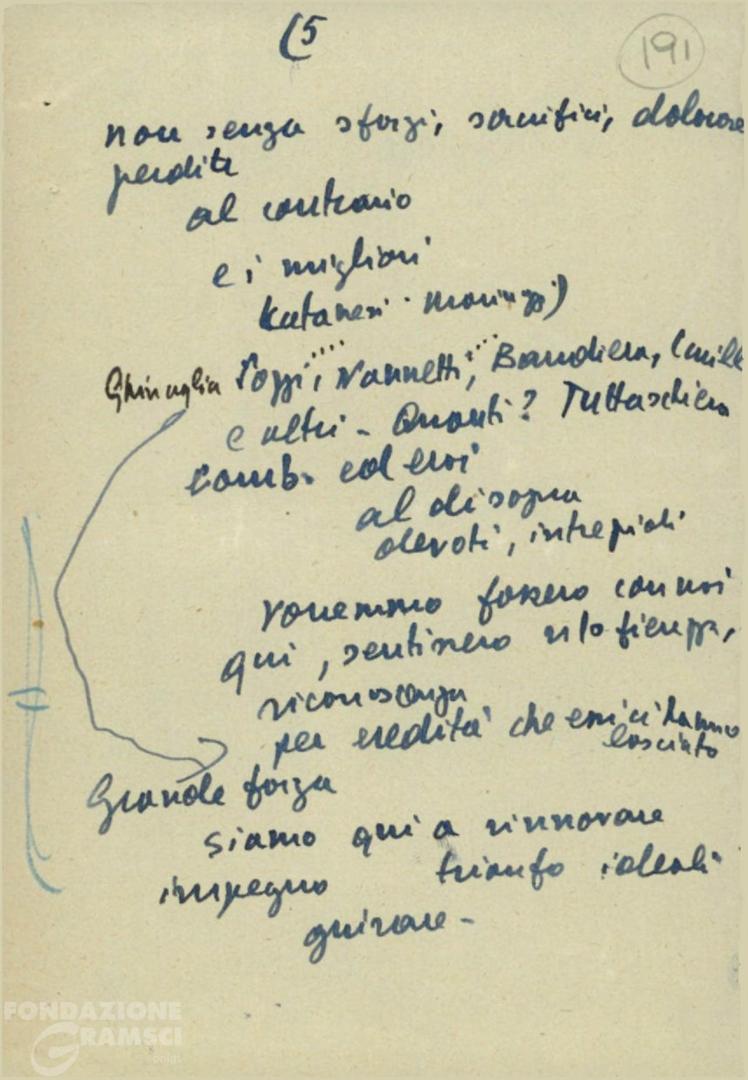 (5
191
non senza sforzi, sacrifici, dolorose
perdite
al contrario
e i migliori
Katanesi
Ghinaglia Pozzi, Nannetti, Bandiera,
e altri - Quanti? Tutta schiera
comb. ed eroi
al di sopra
devoti, intrepidi
vorremmo fossero con noi
qui, sentissero ns/o fierezza,
riconoscenza
per eredità che essi ci hanno
lasciato
Grande forza
siamo qui a rinnovare
impegno trionfo ideali
giurare -
FONDAZIONE
GRAMSCI
onlus